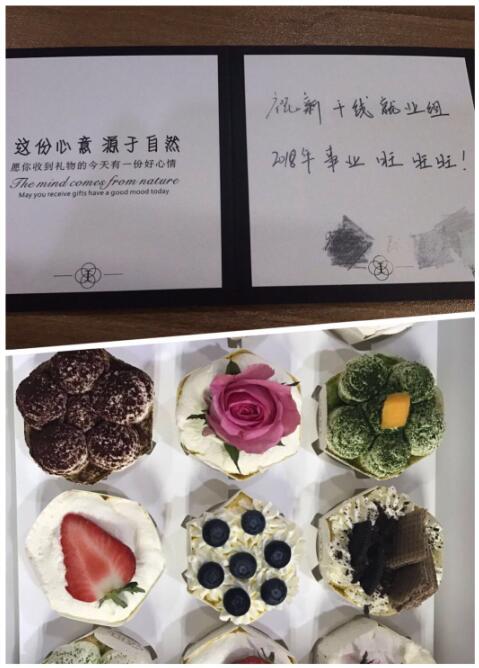 这份心意 源于自然
愿你收到礼物的今天有一份好心情
The mind comes from nature
May you receive gifts have a good mood today
祝新干线就业组
2018年 事业 旺 旺旺!